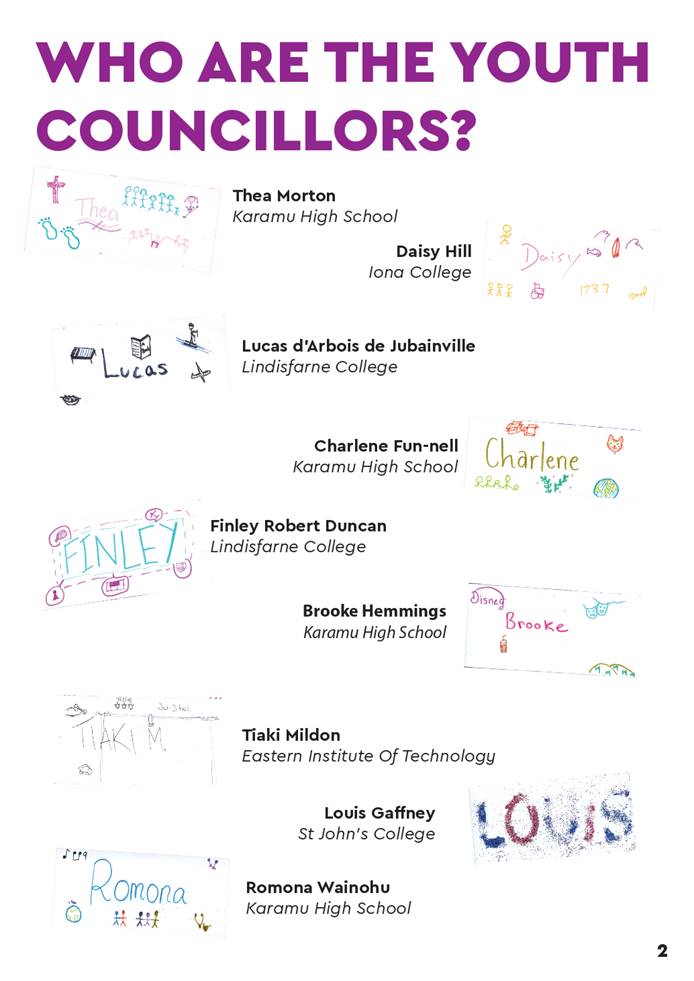 WHO ARE THE YOUTH
COUNCILLORS?
Thea
Thea Morton
Karamu High School
Daisy Hill
Iona College
Daisy
1737
Lucas
Lucas d'Arbois de Jubainville
Lindisfarne College
Charlene Fun-nell
Karamu High School
Charlene
FINLEY
Finley Robert Duncan
Lindisfarne College
Brooke Hemmings
Karamu High School
Disney
Brooke
TIAKI M.
Tiaki Mildon
Eastern Institute Of Technology
Louis Gaffney
St John's College
LOUIS
Romona
Romona Wainohu
Karamu High School
2